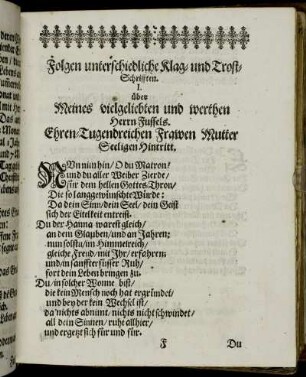 Folgen unterschiedliche Klag- und Trost-
Schrifften.
I.
über
Meines vielgeliebten und werthen
Herrn Fussels.
Ehren-Tugendreichen Frawen Mutter
Seeligen Hintritt.
NUn nim hin / O du Matron /
und du aller Weiber Zierde /
für dem hellen Gottes-Thron /
Die so langgewünschte Würde:
Da dein Sinn / dein Seel / dein Geist
sich der Eitelkeit entreist.
Du der Hanna warest gleich /
an dem Glauben / und an Jahren;
nun solstu / im Himmelreich /
gleiche Freud / mit Ihr / erfahren
und in sanffter süsser Ruh /
fort dein Leben bringen zu.
Du / in solcher Wonne bist /
die kein Mensch noch hat ergründet /
und bey der kein Wechsel ist /
da nichts abnimt / nichts nicht schwindet /
all dein Sinnen / ruht allhier /
und ergetzt sich für und für.
F
Du